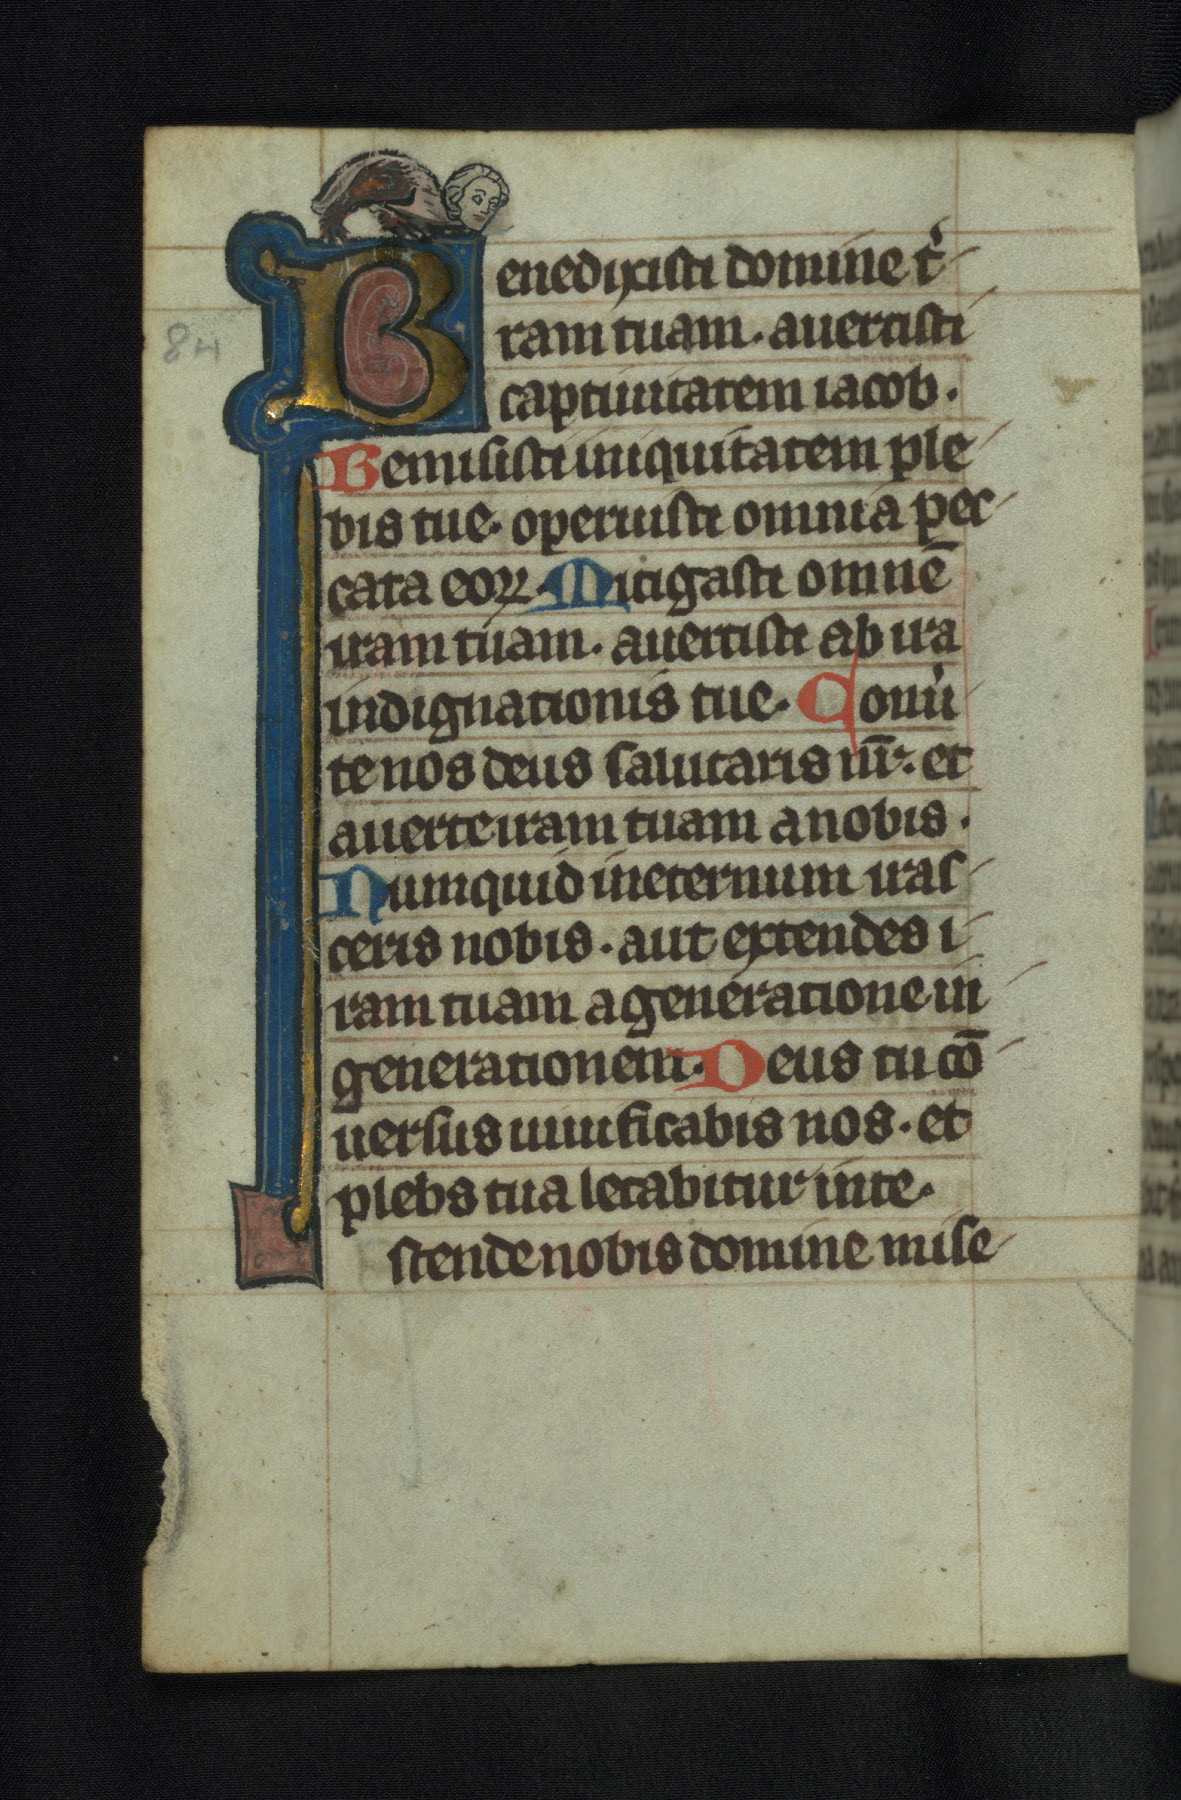 84
Benedixisti domine t᷑
ram tuam. auertisti
captiuitatem iacob.
Remisisti iniquitatem ple
bis tue. operuisti omnia pec
cata eoꝝ. Mitigasti omnē
iram tuam. auertisti ab ira
indignationis tue. Conu᷑
te nos deus salutaris nr̄. et
auerte iram tuam a nobis.
Numquid in eternum iras
ceris nobis. aut extendes i
ram tuam a generatione in
generationem. Deus tu cō
uersus uiuificabis nos. et
plebs tua letabitur in te.
stende nobis domine mise